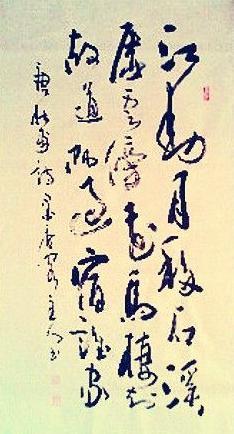 江動月移石溪
虚云傍花鳥棲知
故道帆過宿誰家
唐杜甫詩